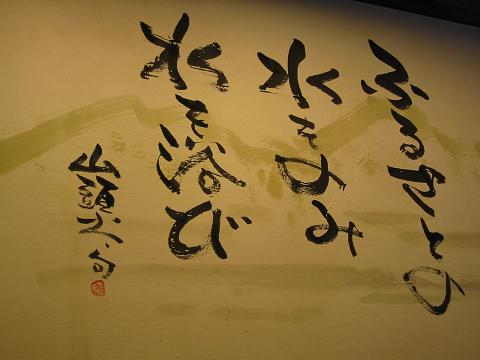 ふるさとの
水をのみ
水を浴び
山頭火句